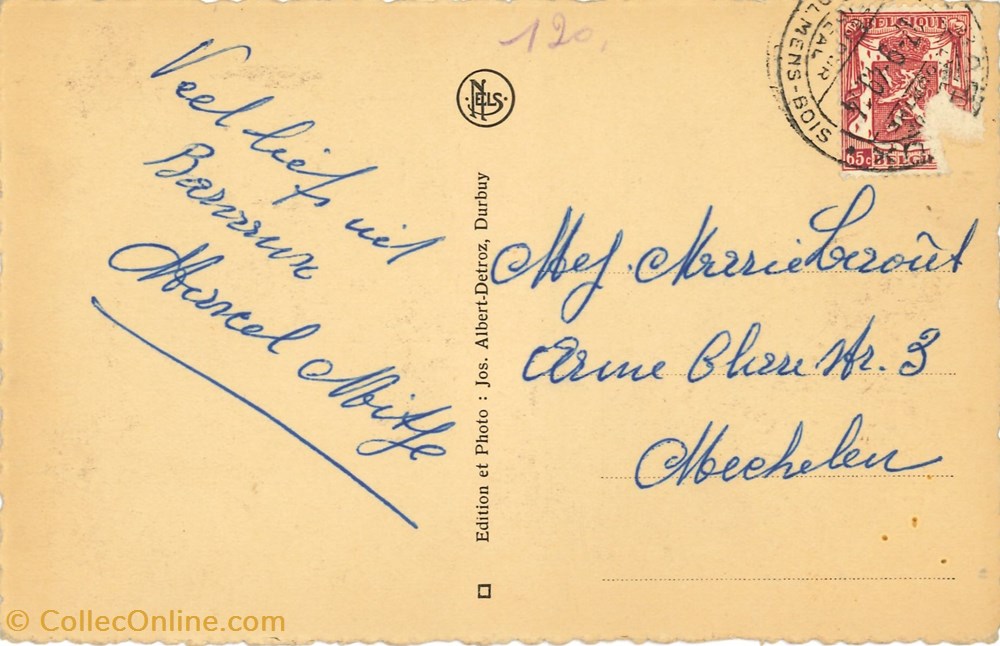 120.
Veel liefs uit
Barvaux
Marcel Mitje
NELS
Edition et Photo : Jos. Albert-Detroz, Durbuy
BELGIQUE
65c BELGIE
DOLMENS-GROTTES
Mej. Marie Laroût
Arme Clare str. 3
Mechelen
© CollecOnline.com